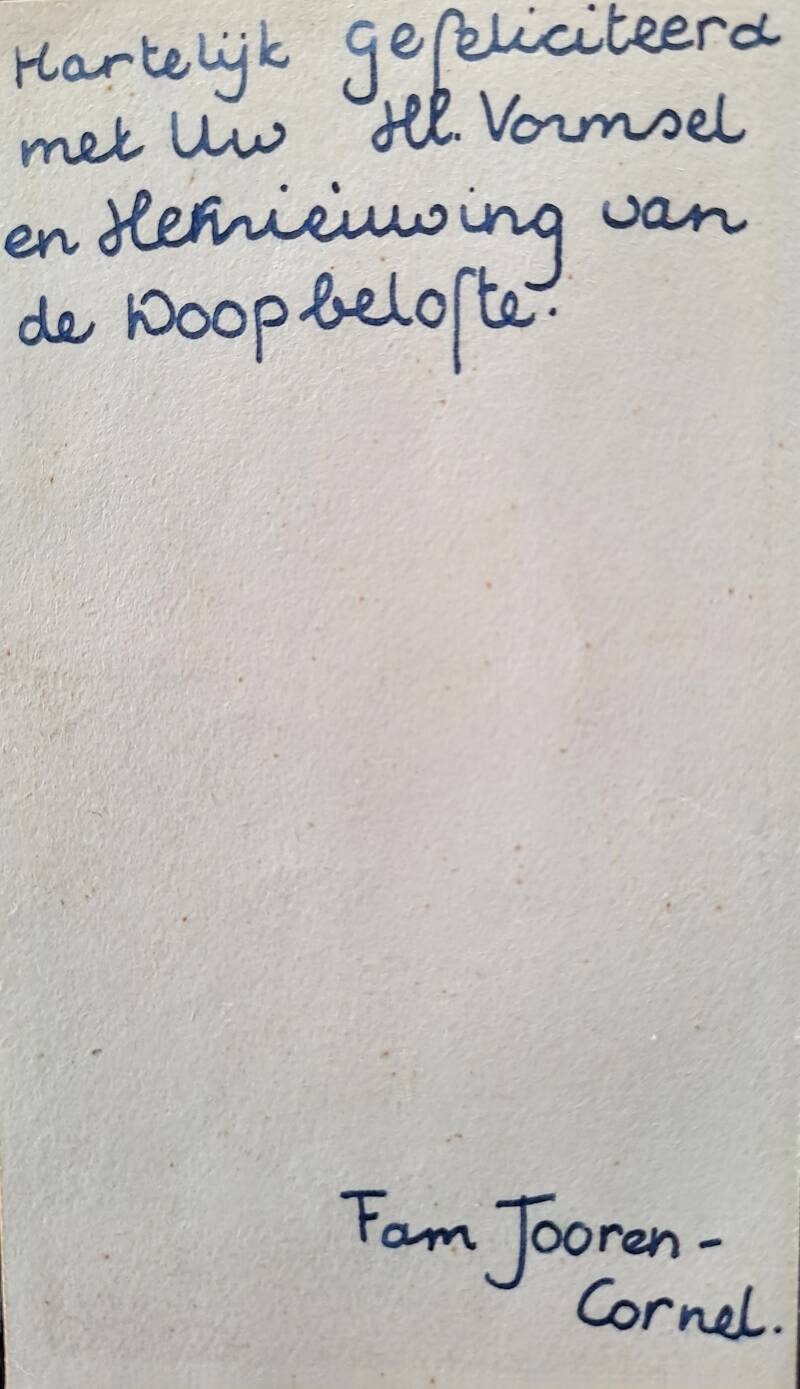 Hartelijk gefeliciteerd
met Uw Hl. Vormsel
en Hernieuwing van
de Doopbelofte.
Fam Jooren -
Cornel.